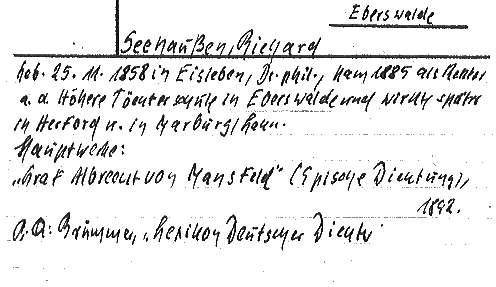 Eberswalde
Seehaußen, Richard
Geb. 25. 11. 1858 in Eisleben, Dr. phil., kam 1885 als Rektor
a. d. Höhere Töchterschule in Eberswalde und wirkte später
in Herford u. in Marburg/Lahn.
Hauptwerke:
„Graf Albrecht von Mansfeld" (Epische Dichtung),
1892.
Brümmer, „Lexikon Deutscher Dichter